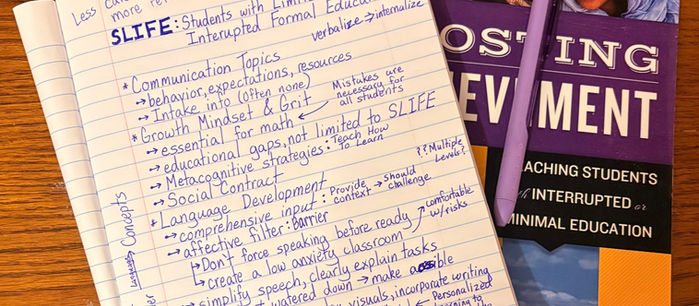 Less
more re
SLIFE: Students with Lim
Interupted Formal Educa
verbalize → internalize
* Communication Topics
→ behavior, expectations, resources
→ Intake info (often none)
* Growth Mindset & Grit
→ essential for math ←
Mistakes are
necessary for
all students
→ educational gaps, not limited to SLIFE
→ Metacognitive strategies: Teach How
To Learn
→ Social Contract
??Multiple
Levels??
* Language Development
→ comprehensive input: Provide
context → should
challenge
→ affective filter: Barrier
↳ Don't force speaking before ready
↳ create a low anxiety classroom → comfortable
w/risks
→ simplify speech, clearly explain tasks
watered down → make
visuals, incorporate writing
← Personalized
Concepts
OSTING
EVEMENT
ACHING STUDENTS
INTERRUPTED or
INIMAL EDUCATION